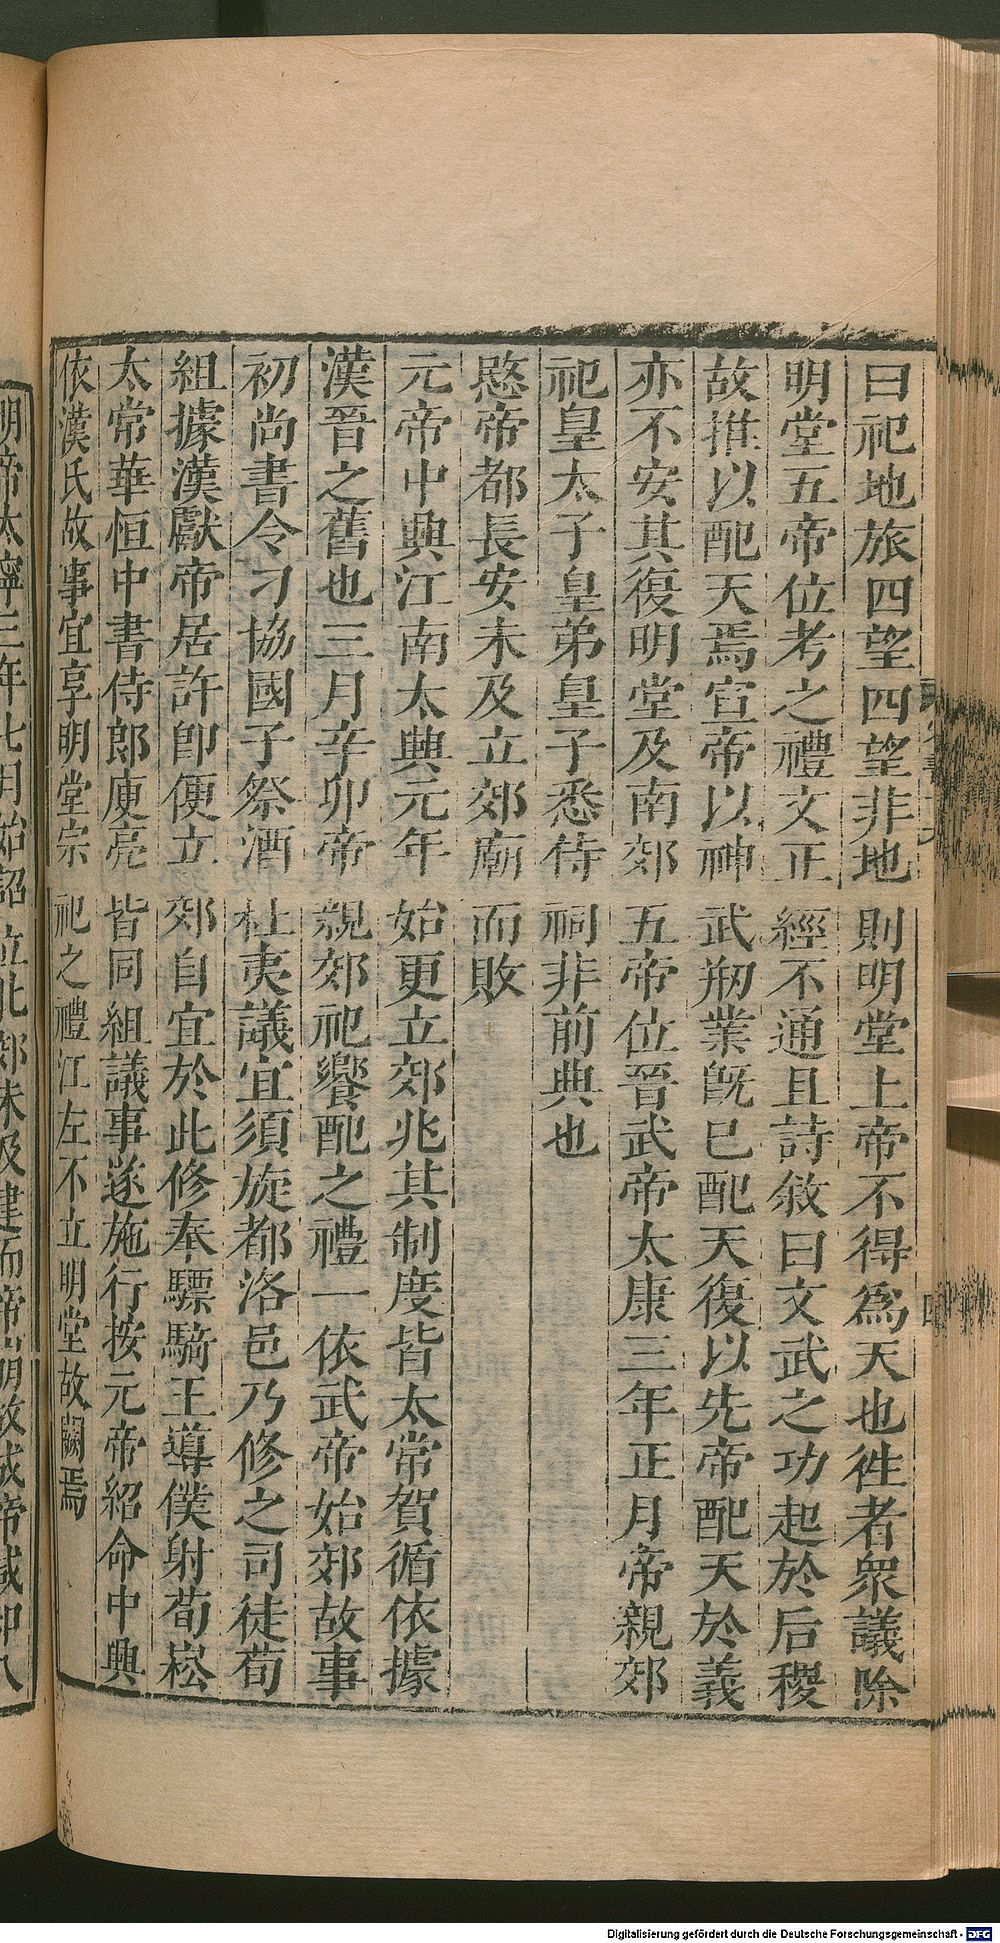 曰祀地旅四望四望非地則明堂上帝不得爲天也徃者衆議除
明堂五帝位考之禮文正經不通且詩敘曰文武之功起於后稷
故推以配天焉宣帝以神武剏業旣已配天復以先帝配天於義
亦不安其復明堂及南郊五帝位晉武帝太康三年正月帝親郊
祀皇太子皇弟皇子悉侍祠非前典也
愍帝都長安未及立郊廟而敗
元帝中興江南太興元年始更立郊兆其制度皆太常賀循依據
漢晉之舊也三月辛卯帝親郊祀饗配之禮一依武帝始郊故事
初尚書令刁協國子祭酒杜夷議宜須旋都洛邑乃修之司徒荀
組據漢獻帝居許卽便立郊自宜於此修奉驃騎王導僕射荀崧
太常華恒中書侍郎庾亮皆同組議事遂施行按元帝紹命中興
依漢氏故事宜享明堂宗祀之禮江左不立明堂故闕焉
明帝太寧三年七月始詔立北郊未及建而帝崩故成帝咸和八
Digitalisierung gefördert durch die Deutsche Forschungsgemeinschaft - DFG